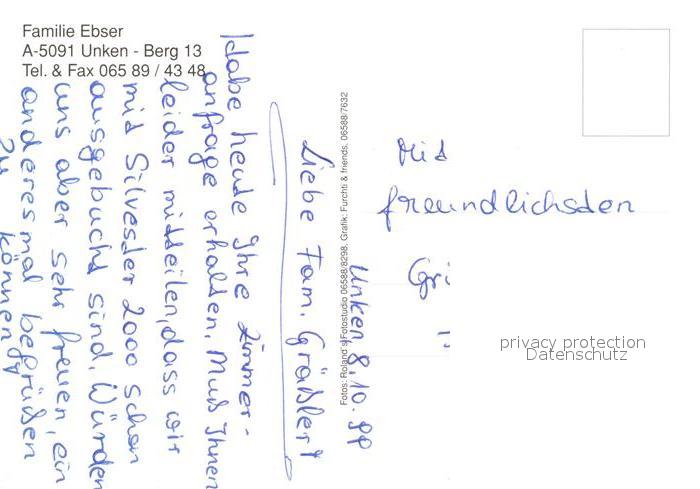 Familie Ebser
A-5091 Unken - Berg 13
Tel. & Fax 065 89 / 43 48
Unken 8.10.99
Liebe Fam. Gräßler!
Habe heute Ihre Zimmer-
anfrage erhalten. Muß Ihnen
leider mitteilen, dass wir
mit Silvester 2000 schon
ausgebucht sind. Würden
uns aber sehr freuen, ein
anderes mal begrüßen
zu können
Mit
freundlichsten
Grü
Fotos: Roland's Fotostudio 06588/8298. Grafik: Furchti & friends, 06588/7632
privacy protection
Datenschutz